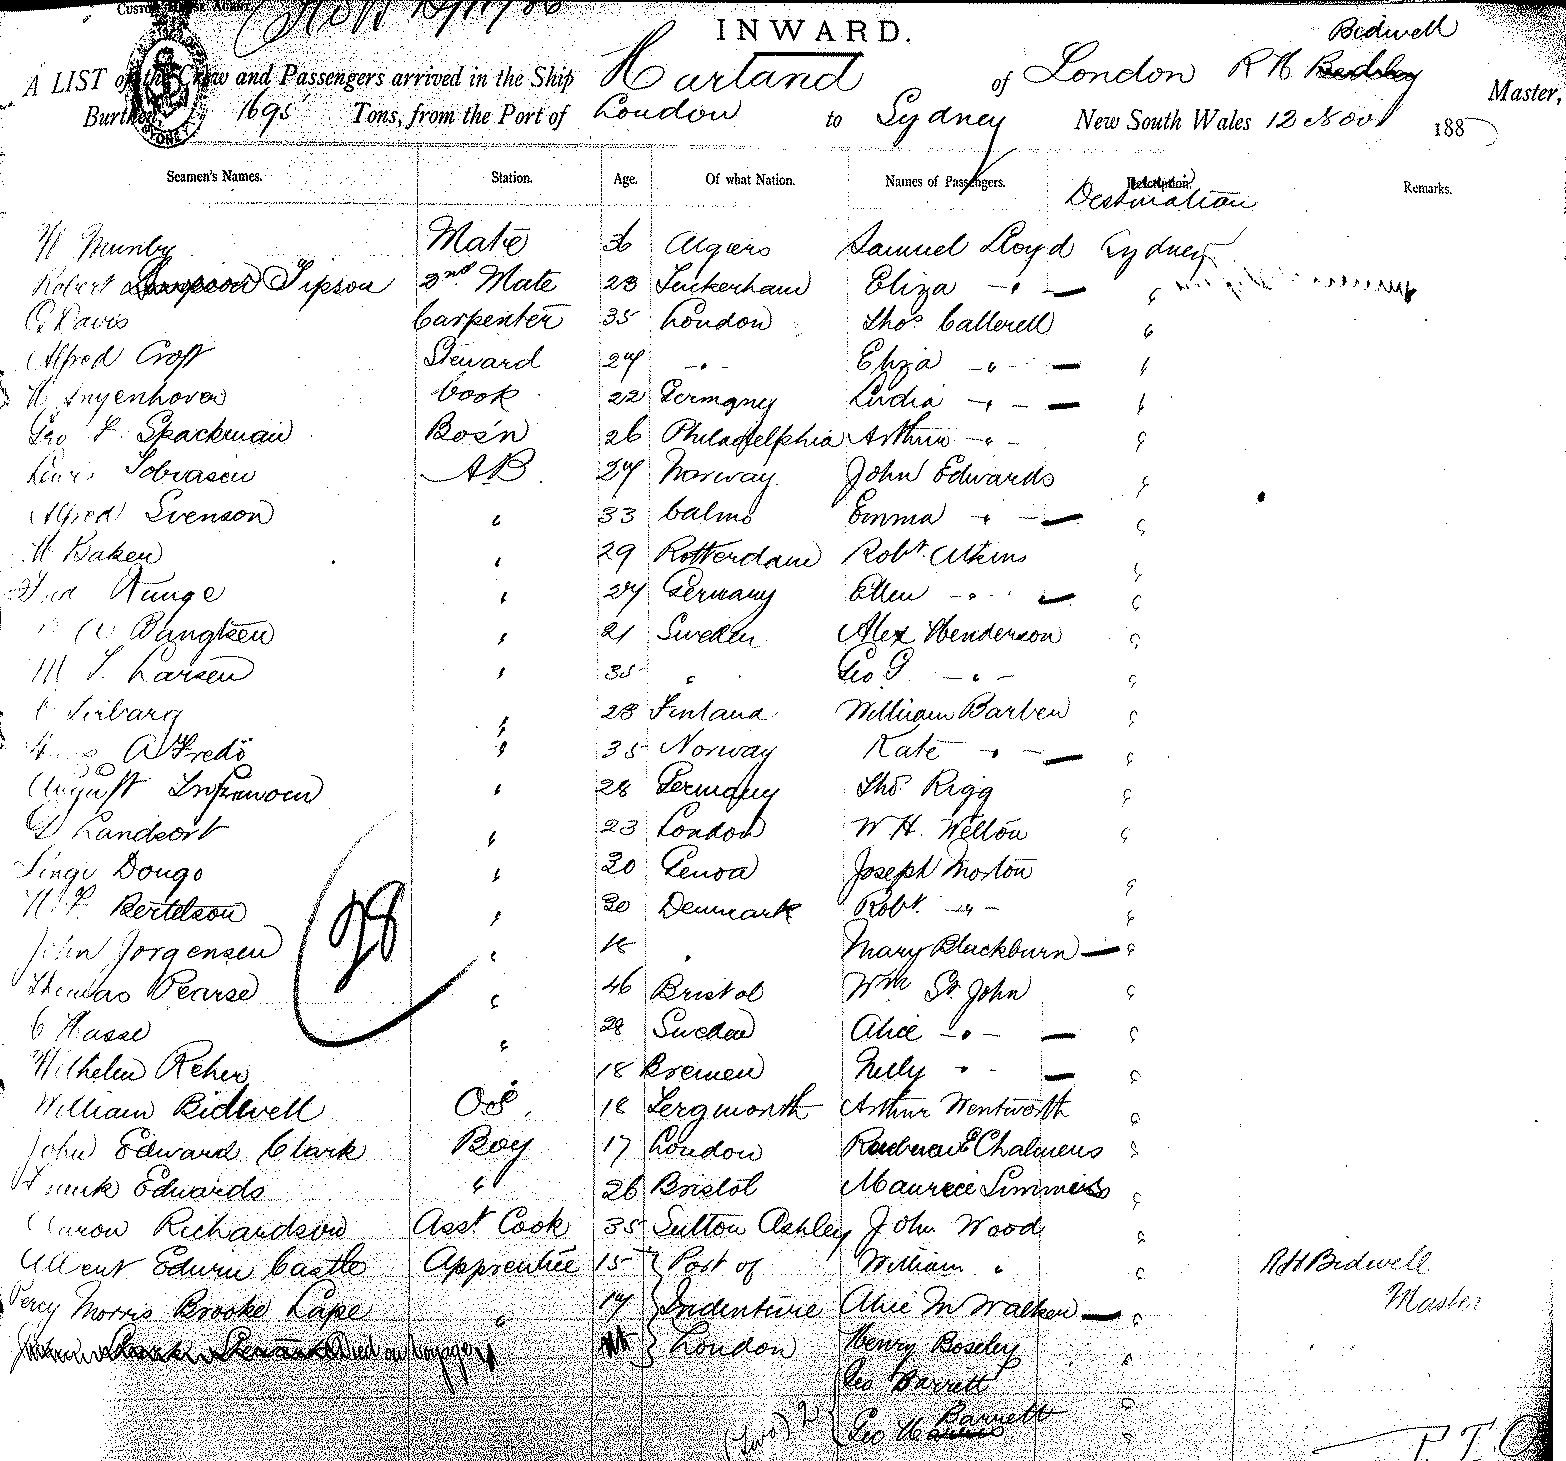 INWARD.
Bidwell
A LIST of the Crew and Passengers arrived in the Ship Harland of London R H Master,
Burthen, 1695 Tons, from the Port of London to Sydney New South Wales 12 Nov 188
Seamen's Names. Station. Age. Of what Nation. Names of Passengers. Description. Remarks.
Destination
H Munby Mate 36 Algiers Samuel Lloyd Sydney
Robert Tipson 2nd Mate 23 Eliza -"-
C Davis Carpenter 35 London Thos Catterell "
Alfred Croft Steward 24 -"- Eliza -"- "
H Cook 22 Germany Lydia -"- "
Geo F. Spackman Bos'n 26 Philadelphia Arthur -"- "
AB 24 Norway John Edwards "
Alfred Svenson " 33 Calmo Emma " "
H Baker " 29 Rotterdam Robt. Atkins "
Runge " 24 Germany Ellen -"- "
Bangtsen " 21 Sweden Alex Henderson "
M L. Larsen " 35 " Geo G. -"- "
" 28 Finland William Barber "
A Fredö " 35 Norway Kate " "
August " 28 Germany Thos Rigg "
Landsort " 23 London W H. Welton "
Dongo " 30 Genoa Joseph Morton "
H. P. Bertelson " 30 Denmark Robt. -"- "
John Jorgensen " 18 " Mary Blackburn "
Thomas Pearse " 46 Bristol Wm St. John "
C Hasse " 28 Sweden Alice -"- "
Wilhelm Reher " 18 Bremen Nelly " "
William Bidwell OS. 18 Arthur Wentworth "
John Edward Clark Boy 17 London Chalmers "
Frank Edwards " 26 Bristol Maurice Simmers "
Aaron Richardson Asst Cook 35 Sutton Ashley John Wood "
Edwin Castle Apprentice 15 Port of William " " R H Bidwell
Percy Morris Brooke Cape " 17 Indenture Alice M Walker " Master
Died on Voyage London Henry Boseley "
Geo Barrett "
(Two) 2 Geo Barnett "
P.T.O